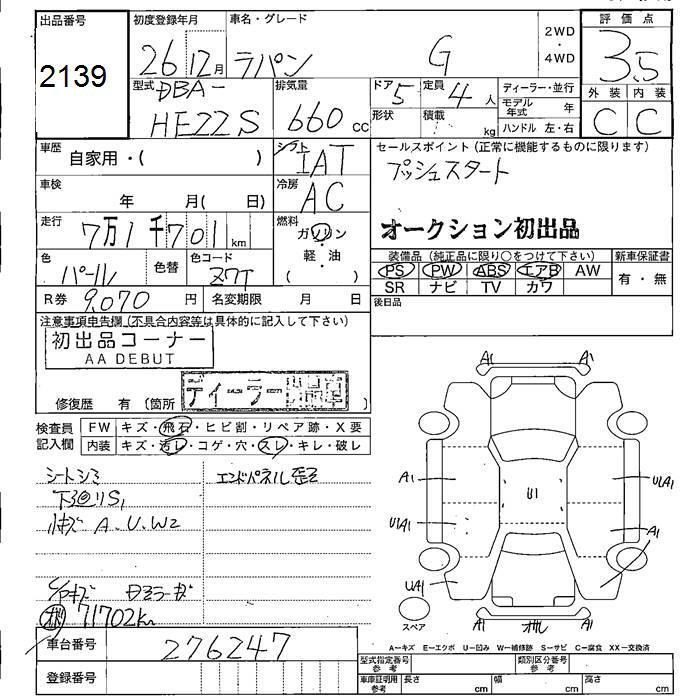 出品番号 初度登録年月 車名・グレード 評価点
2139 26 12月 ラパン G 2WD・4WD 3.5
型式 DBA- HE22S 排気量 660 cc ドア 5 定員 4 人 ディーラー・並行 外装 内装
形状 積載 kg モデル年式 年 C C
ハンドル 左・右
車歴 自家用・( ) シフト IAT セールスポイント (正常に機能するものに限ります)
プッシュスタート
車検 年 月( 日) 冷房 AC
オークション初出品
走行 7万1千701 km 燃料 ガソリン・軽油 ( )
装備品 (純正品に限り○をつけて下さい) 新車保証書
色 パール 色替 色コード Z7T PS PW ABS エアB AW 有・無
SR ナビ TV カワ
R券 9,070 円 名変期限 月 日 後日品
注意事項申告欄 (不具合内容等は具体的に記入して下さい)
初出品コーナー
AA DEBUT
ディーラー
修復歴 有 (箇所 )
検査員記入欄 FW キズ・飛石・ヒビ割・リペア跡・X要
内装 キズ・汚レ・コゲ・穴・スレ・キレ・破レ
シートシミ エンドパネル歪
下廻リS1
小キズ A.U.W2
71702km
車台番号 276247
登録番号
A1 A1
A1 U1 U1A1
U1A1 A1
UA1
スペア A1 A1
A=キズ E=エクボ U=凹み W=補修跡 S=サビ C=腐食 XX=交換済
型式指定番号 参考 類別区分番号 参考
車庫証明用 参考 長さ cm 幅 cm 高さ cm